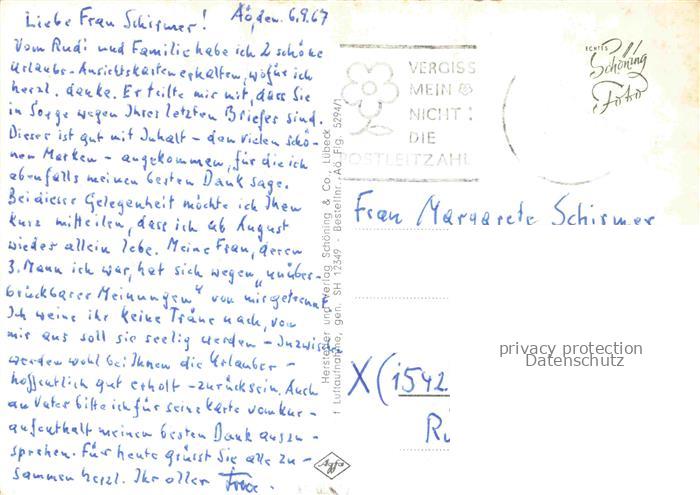 Liebe Frau Schirmer! Aö, den 6.9.67
Vom Rudi und Familie habe ich 2 schöne
Urlaubs-Ansichtskarten erhalten, wofür ich
herzl. danke. Er teilte mir mit, dass Sie
in Sorge wegen Ihres letzten Briefes sind.
Dieser ist gut mit Inhalt - den vielen schö-
nen Marken - angekommen, für die ich
ebenfalls meinen besten Dank sage.
Bei dieser Gelegenheit möchte ich Ihnen
kurz mitteilen, dass ich ab August
wieder allein lebe. Meine Frau, deren
3. Mann ich war, hat sich wegen "unüber-
brückbarer Meinungen" von mir getrennt
Ich weine ihr keine Träne nach, von
mir aus soll sie seelig werden - Inzwischen
werden wohl bei Ihnen die Urlauber -
hoffentlich gut erholt - zurück sein. Auch
an Vater bitte ich für seine Karte vom Kur-
aufenthalt meinen besten Dank auszu-
sprechen. Für heute grüsst Sie alle zu-
sammen herzl. Ihr oller
Hersteller und Verlag Schöning & Co., Lübeck
† Luftaufnahme, gen. SH 12349 - Bestellnr. Aö. Flg. 5294/1
Agfa
VERGISS
MEIN
NICHT!
DIE
POSTLEITZAHL
ECHTES
Schöning
Foto
Frau Margarete Schirmer
privacy protection
Datenschutz
X (1542